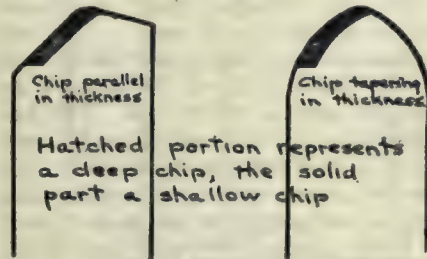 Chip parallel
in thickness
Chip tapering
in thickness
Hatched portion represents
a deep chip, the solid
part a shallow chip